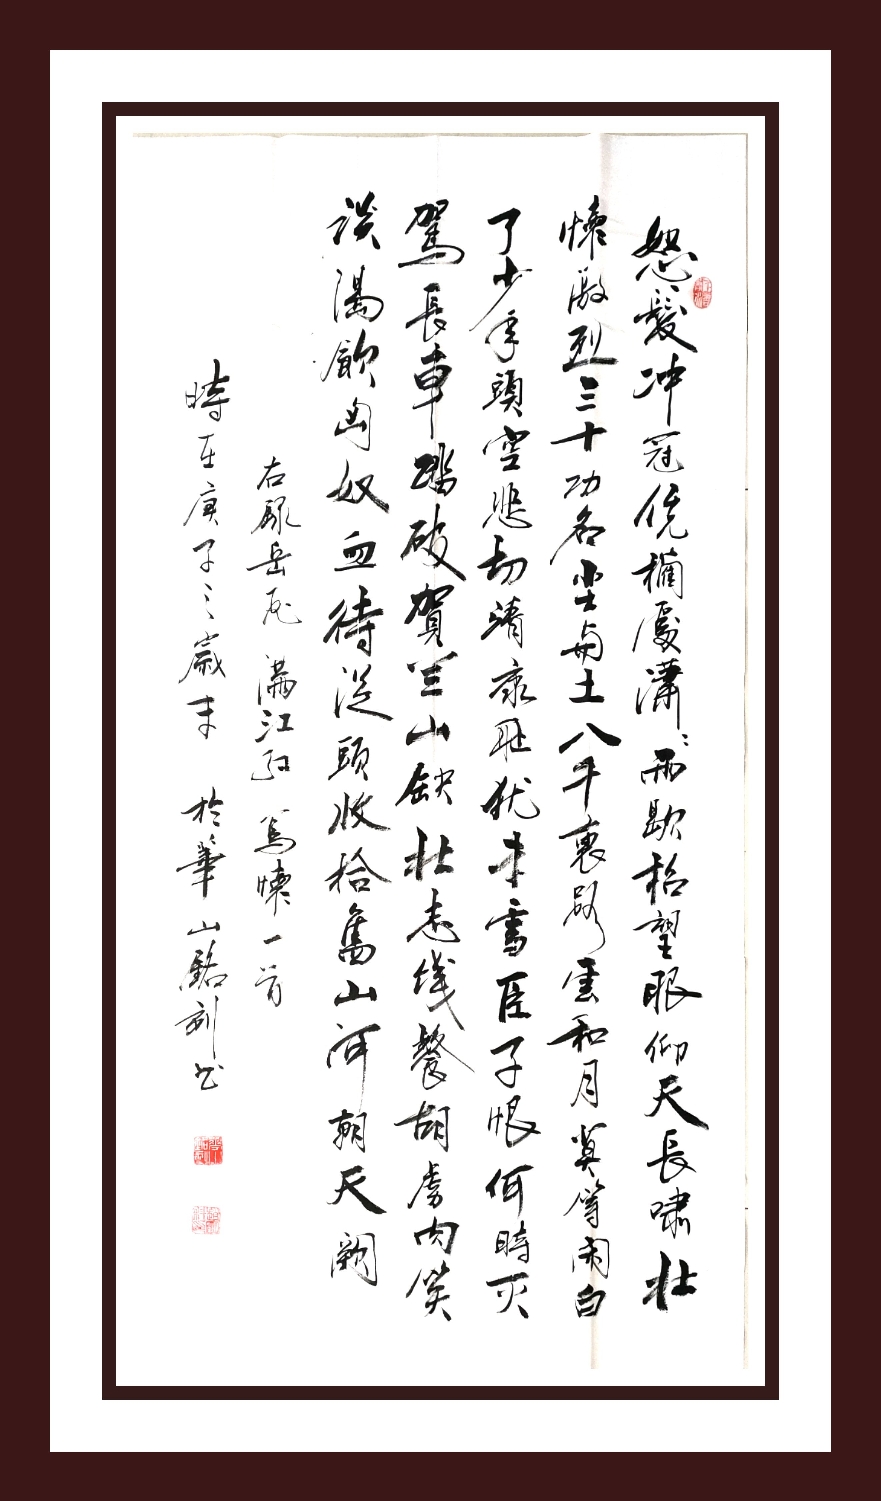 怒髮冲冠凭欄處瀟〻雨歇抬望眼仰天長嘯壯
懷激烈三十功名尘与土八千裏路雲和月莫等闲白
了少年頭空悲切靖康恥犹未雪臣子恨何時灭
駕長車踏破賀兰山缺壮志饥餐胡虏肉笑
談渴飲匈奴血待從頭收拾舊山河朝天阙
右录岳飛 滿江红 寫懷一首
時在庚子之歲末 於華山 刻书